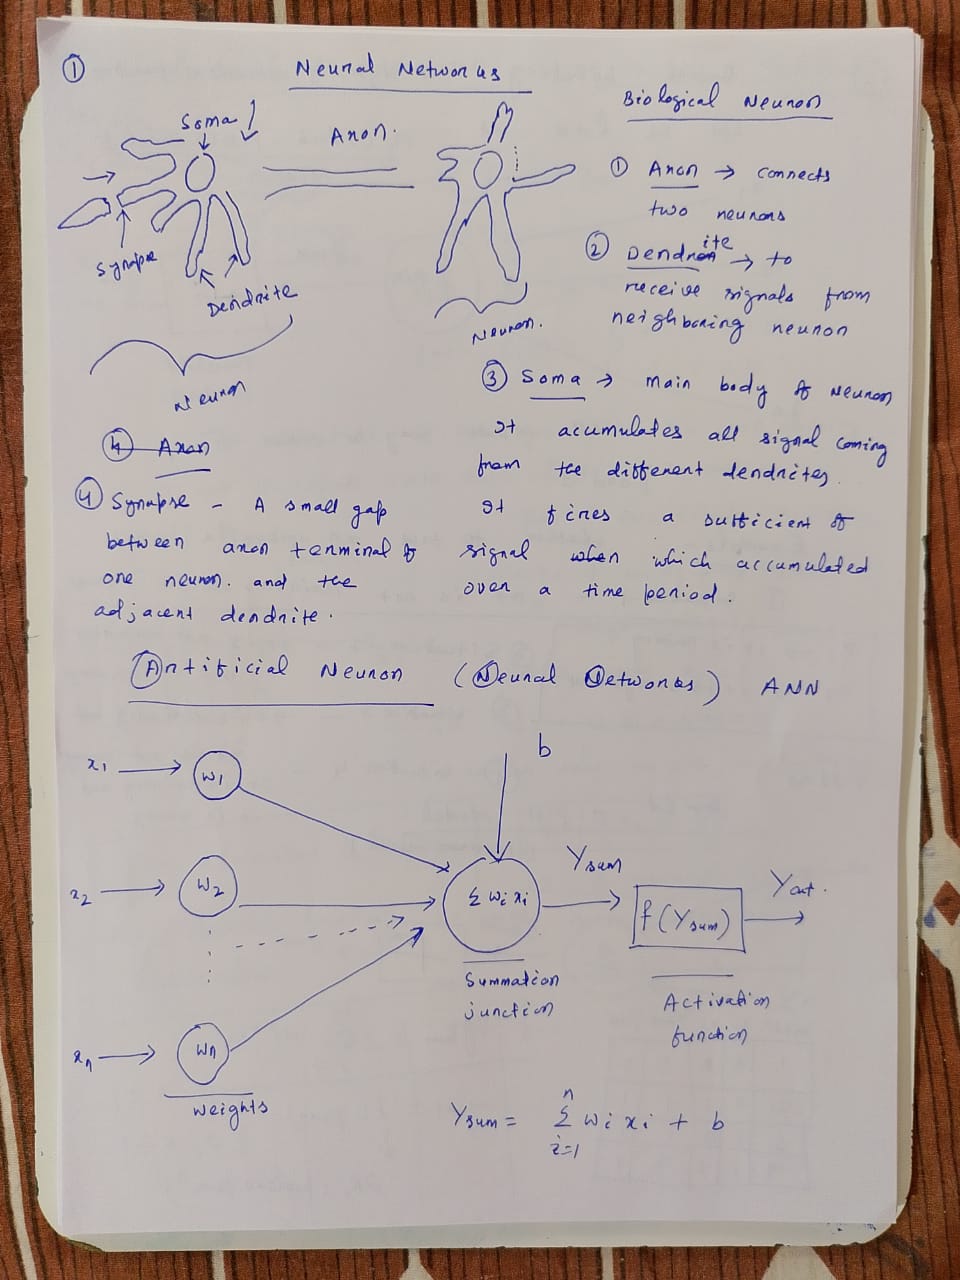 ①
Neural Networks
Soma
Axon.
Synapse
Dendrite
Neuron
Neuron.
Biological Neuron
① Axon → connects
two neurons
② Dendrite → to
receive signals from
neighboring neuron
③ Soma → main body of Neuron
It acumulates all signal coming
from the different dendrites.
It fires a sufficient of
signal when which accumulated
over a time period.
④ Axon
④ Synapse - A small gap
between axon terminal of
one neuron. and the
adjacent dendrite.
Artificial Neuron (Neural Networks) ANN
b
x₁ → w₁
x₂ → w₂
xₙ → wₙ
weights
Σ wᵢ xᵢ
Summation
junction
Ysum
f(Ysum)
Activation
function
Yout.
Ysum = Σ (i=1 to n) wᵢ xᵢ + b